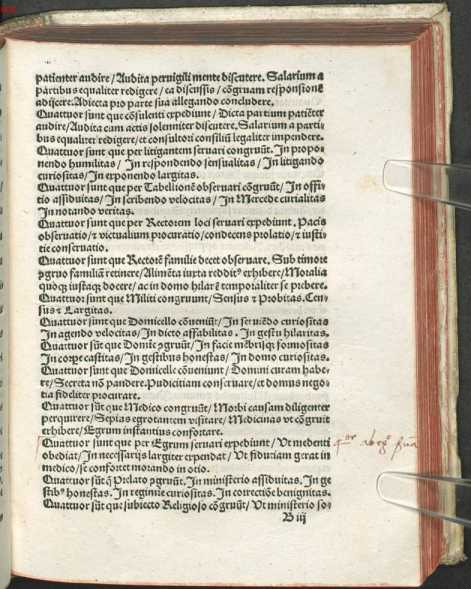 patienter audire/Audita peruigili mente discutere. Salarium a
partibus equaliter redigere/ea discussis/cõgruam responsionẽ
adijcere. Adiecta pro parte sua allegando concludere.
Quattuor sunt que cõsulenti expediunt/Dicta partium patiẽter
audire/Audita cum actis solenniter discutere. Salarium a parti-
bus equaliter redigere/et consultori consiliũ legaliter impendere.
Quattuor sunt que per litigantem seruari congruũt. In propo-
nendo humilitas/In respondendo sensualitas/In litigando
curiositas/In exponendo largitas.
Quattuor sunt que per Tabellionẽ obseruari cõgruũt/In offi-
tio assiduitas/In scribendo velocitas/In Mercede curialitas
In notando veritas.
Quattuor sunt que per Rectorem loci seruari expediunt. Pacis
obseruatio/⁊ victualium procuratio/condecens prolatio/⁊ iusti-
tie conseruatio.
Quattuor sunt que Rectorẽ familie decet obseruare. Sub timore
ꝯgruo familiã retinere/Alimẽta iuxta reddit⁹ exhibere/Moralia
quoqꝫ iustaqꝫ docere/ac in domo hilarẽ temporaliter se prebere.
Quattuor sunt que Militi congruunt/Sensus ⁊ Probitas. Cen-
sus ⁊ Largitas.
Quattuor sunt que Domicello cõueniũt/In seruiẽdo curiositas
In agendo velocitas/In dicto affabilitas. In gestu hilaritas.
Quattuor sũt que Domine ꝯgruũt/In facie mẽbrisqꝫ formositas
In corpe castitas/In gestibus honestas/In domo curiositas.
Quattuor sunt que Domicelle cõueniunt/Domini curam habe-
re/Secreta nõ pandere. Pudicitiam conseruare/et domus nego-
tia fideliter procurare.
Quattuor sũt que Medico congruũt/Morbi causam diligenter
perquirere/Sepias egrotantem visitare/Medicinas vt cõgruit
exhibere/Egrum instantius confortare.
Quattuor sunt que per Egrum seruari expediunt/Vt medenti
obediat/In necessarijs largiter expendat/Vt fiduciam gerat in
medico/se confortet morando in otio.
Quattuor sũt q̃ Prelato ꝯgruũt. In ministerio assiduitas. In ge
stib⁹ honestas. In regimine curiositas. In correctiõe benignitas.
Quattuor sũt que subiecto Religioso cõgruũt/Vt ministerio so-
B iij